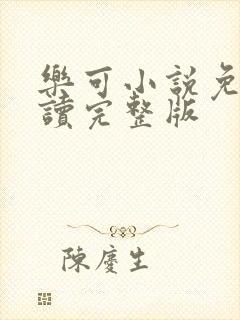 樂可小説免
讀完整版
陳慶生